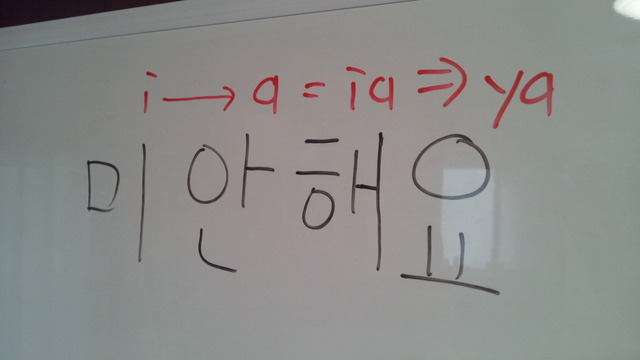 i → a = ia ⇒ ya
미안해요